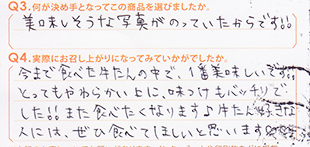 Q3.何が決め手となってこの商品を選びましたか。
美味しそうな写真がのっていたからです!!
Q4.実際にお召し上がりになってみていかがでしたか。
今まで食べた牛たんの中で、1番美味しいです!!
とってもやわらかい上に、味つけもバッチリで
した!! また食べたくなります♪牛たん好きな
人には、ぜひ食べてほしいと思います